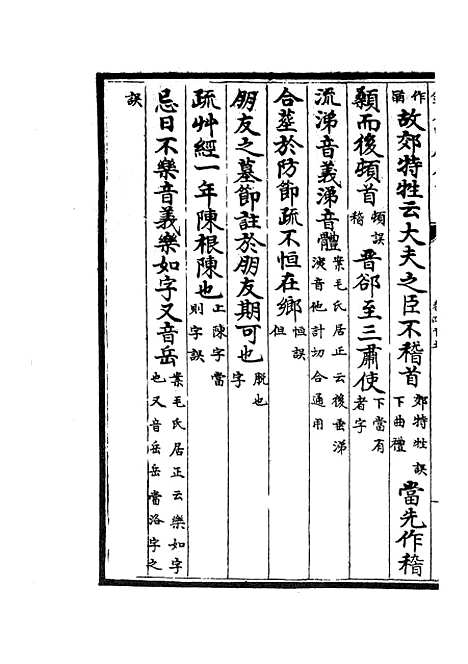 作故郊特牲云大夫之臣不稽首郊特牲誤下曲禮當先作稽
顙而後頓首頓誤稽晉郤至三肅使下當有者字
流涕音義涕音體案毛氏居正云後垂涕洟音他計切合通用
合葬於防節疏不恒在鄉恒誤但
朋友之墓節註於朋友期可也脫也字
疏艸經一年陳根陳也上陳字當則字誤
忌日不樂音義樂如字又音岳案毛氏居正云樂如字也又音岳岳當洛字之
誤